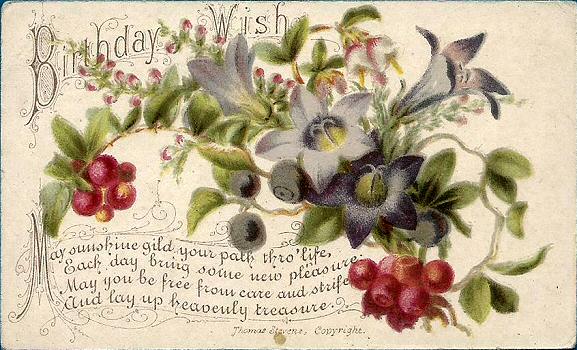 Birthday Wish
May sunshine gild your path thro' life,
Each day bring some new pleasure;
May you be free from care and strife
And lay up heavenly treasure.
Thomas Stevens, Copyright.